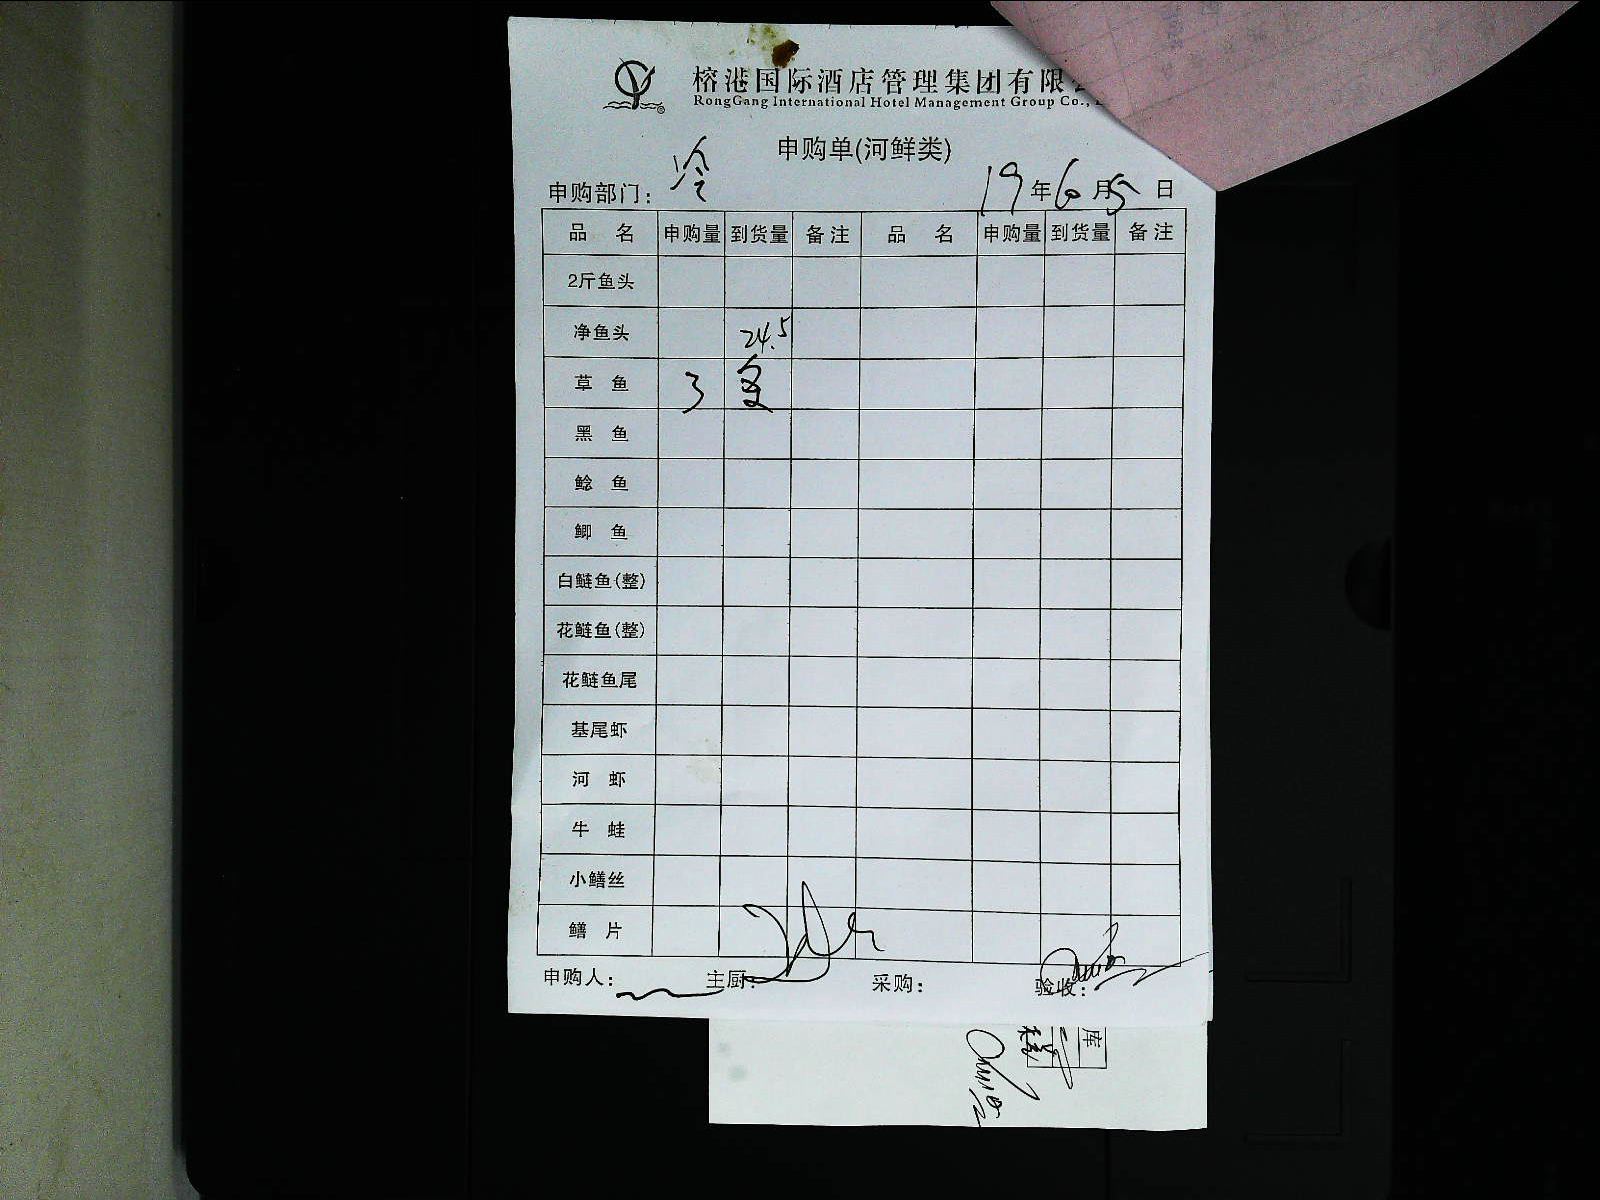 榕港国际酒店管理集团有限
RongGang International Hotel Management Group Co.,
申购单(河鲜类)
申购部门: 冷 19年6月5日
品名 申购量 到货量 备注 品名 申购量 到货量 备注
2斤鱼头
净鱼头 24.5
草鱼 3
黑鱼
鲶鱼
鲫鱼
白鲢鱼(整)
花鲢鱼(整)
花鲢鱼尾
基尾虾
河虾
牛蛙
小鳝丝
鳝片
申购人: 主厨: 采购: 验收:
库